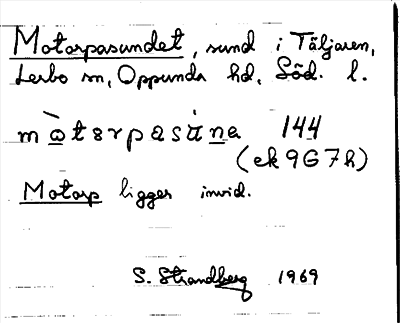 Motorpasundet, sund i Täljaren,
Lerbo sn, Oppunda hd, Söd. l.
mòtərpasúna 144
(ek 9G7h)
Motorp ligger invid.
S. Strandberg 1969